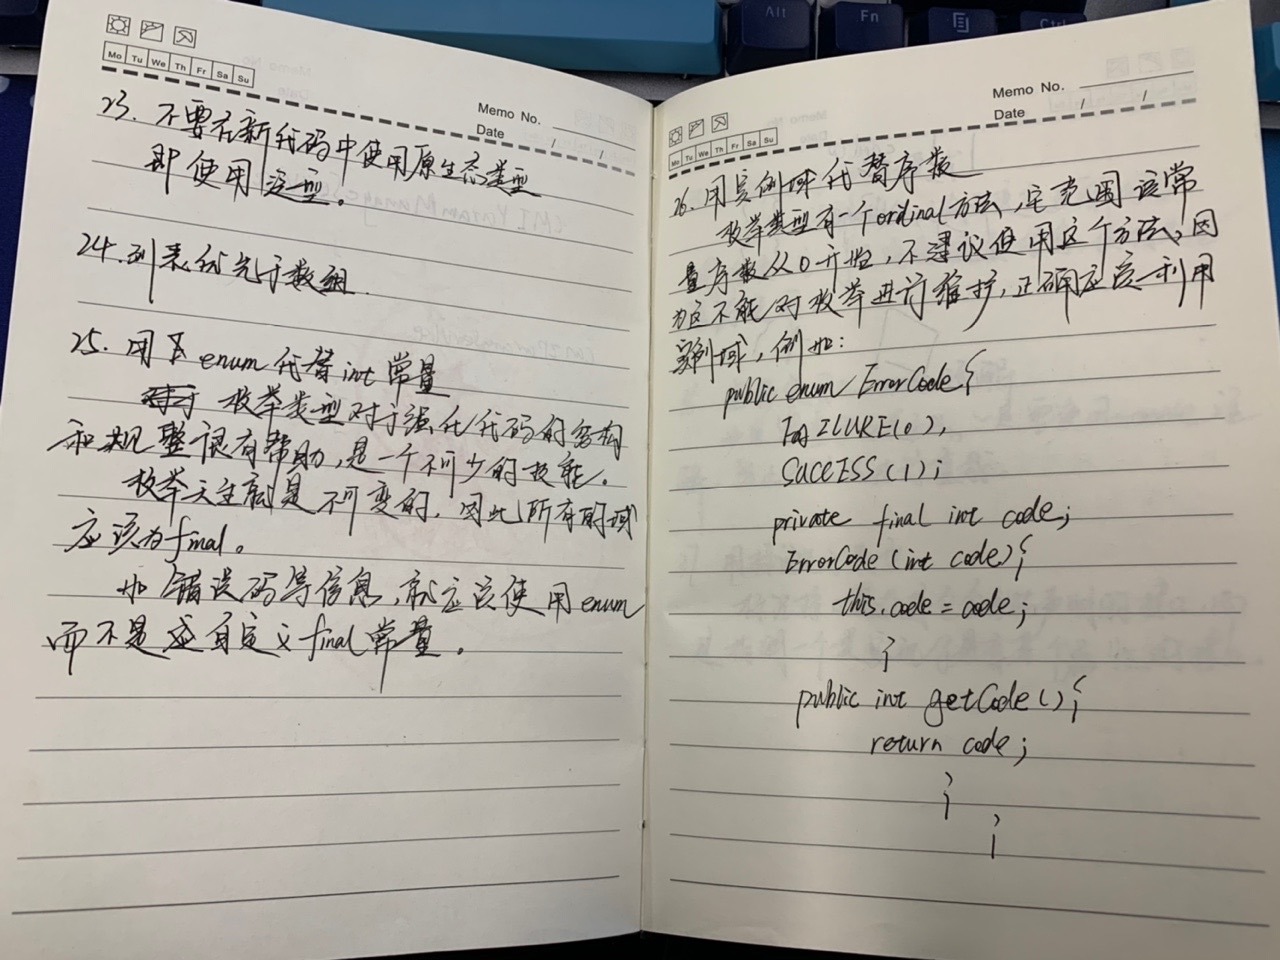 Mo Tu We Th Fr Sa Su
Memo No.
Date / /
23. 不要在新代码中使用原生态类型
即使用泛型。
24. 列表优先于数组.
25. 用 enum 代替 int 常量
枚举类型对于强化代码的结构
和规整很有帮助, 是一个不可少的技能。
枚举天生就是不可变的, 因此所有的域
应该为final。
如错误码等信息, 就应该使用 enum
而不是自定义final常量。
Mo Tu We Th Fr Sa Su
Memo No.
Date / /
26. 用实例域代替序数
枚举类型有一个ordinal方法, 它范围该常
量序数从0开始, 不建议使用这个方法, 因
为这不能对枚举进行维护, 正确应该利用
实例域, 例如:
public enum ErrorCode{
FAILURE(0),
SUCCESS(1);
private final int code;
ErrorCode(int code){
this.code = code;
}
public int getCode(){
return code;
}
}
Alt
Fn
Ctrl